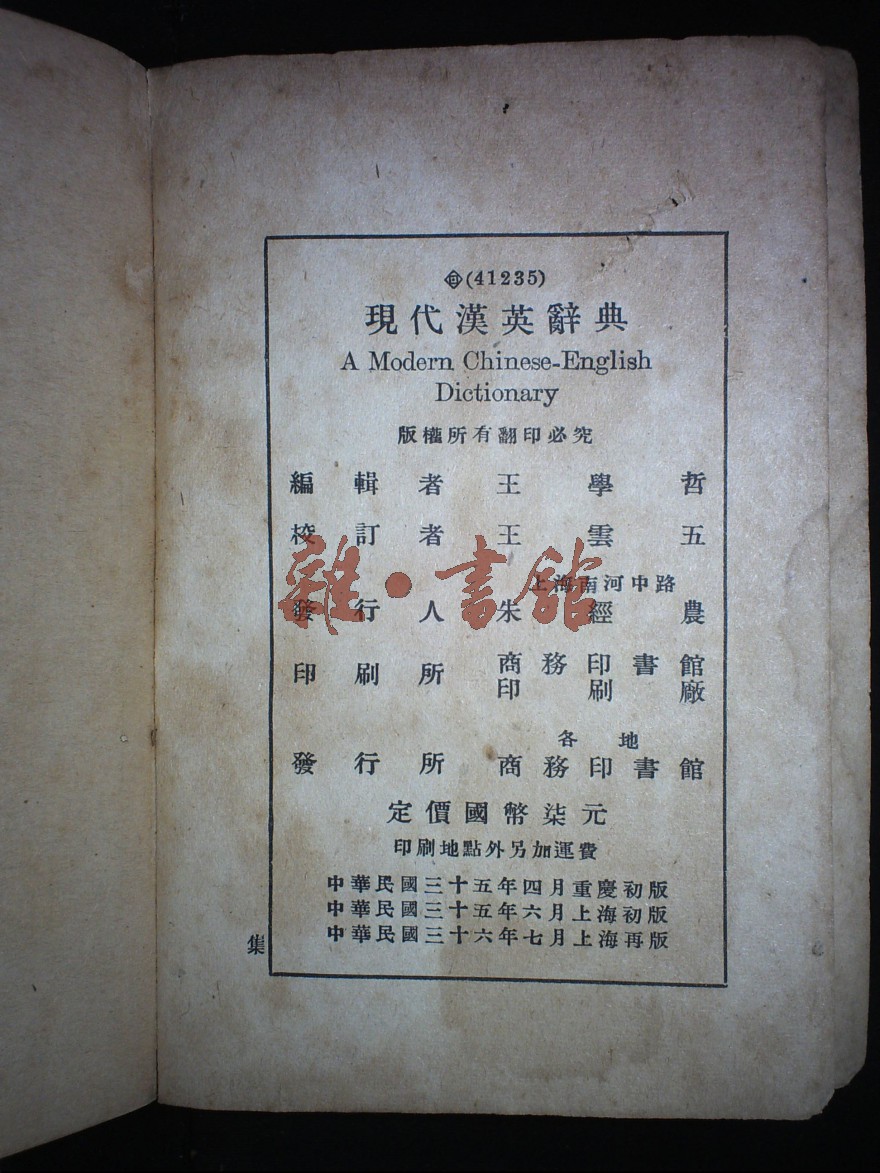 (41235)
現代漢英辭典
A Modern Chinese-English
Dictionary
版權所有翻印必究
編輯者 王學哲
校訂者 王雲五
上海南河中路
發行人 朱經農
印刷所 商務印書館
印刷廠
各地
發行所 商務印書館
定價國幣柒元
印刷地點外另加運費
中華民國三十五年四月重慶初版
中華民國三十五年六月上海初版
中華民國三十六年七月上海再版
集
雜·書館